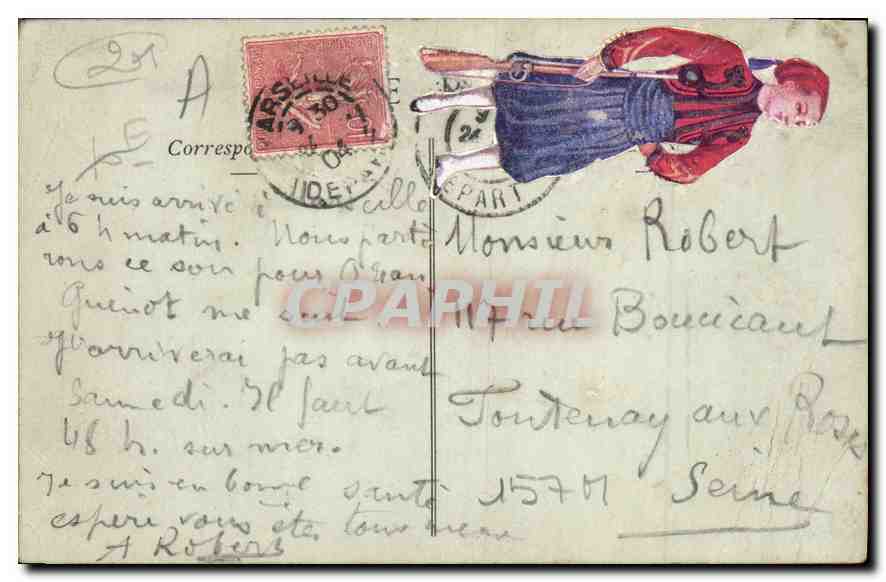 2x
A
E
Correspo
MARSEILLE
9 30
04
DEPART
24
DEPART
Je suis arrivé à Marseille
à 6 h matin. Nous parti
rons ce soir pour Oran
Guénot me suit
J'arriverai pas avant
Samedi. Il faut
48 h. sur mer.
Je suis en bonne santé
espère vous êtes tous
A Robert
Monsieur Robert
117 rue Boucicaut
Fontenay aux Roses
157 M Seine
CPAPHIL